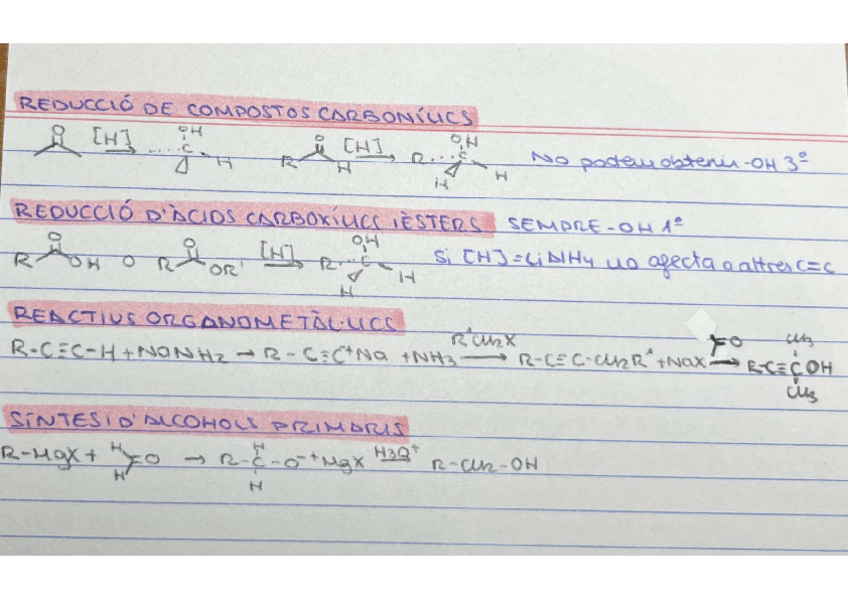 REDUCCIÓ DE COMPOSTOS CARBONÍLICS
O [H] OH C H O R H [H] OH R C H H No podem obtenir -OH 3º
REDUCCIÓ D'ÀCIDS CARBOXÍLICS I ÈSTERS SEMPRE -OH 1º
R O OH O R O OR' [H] OH R C H H Si [H]=LiAlH4 no afecta a altres C=C
REACTIUS ORGANOMETÀL·LICS
R-C≡C-H + NaNH2 → R-C≡C⁻⁺Na + NH3 R'CH2X → R-C≡C-CH2R' + NaX O → R-C≡C OH CH3 CH3
SÍNTESI D'ALCOHOLS PRIMARIS
R-MgX + H H O → R-C-O⁻⁺MgX H H H3O⁺ R-CH2-OH